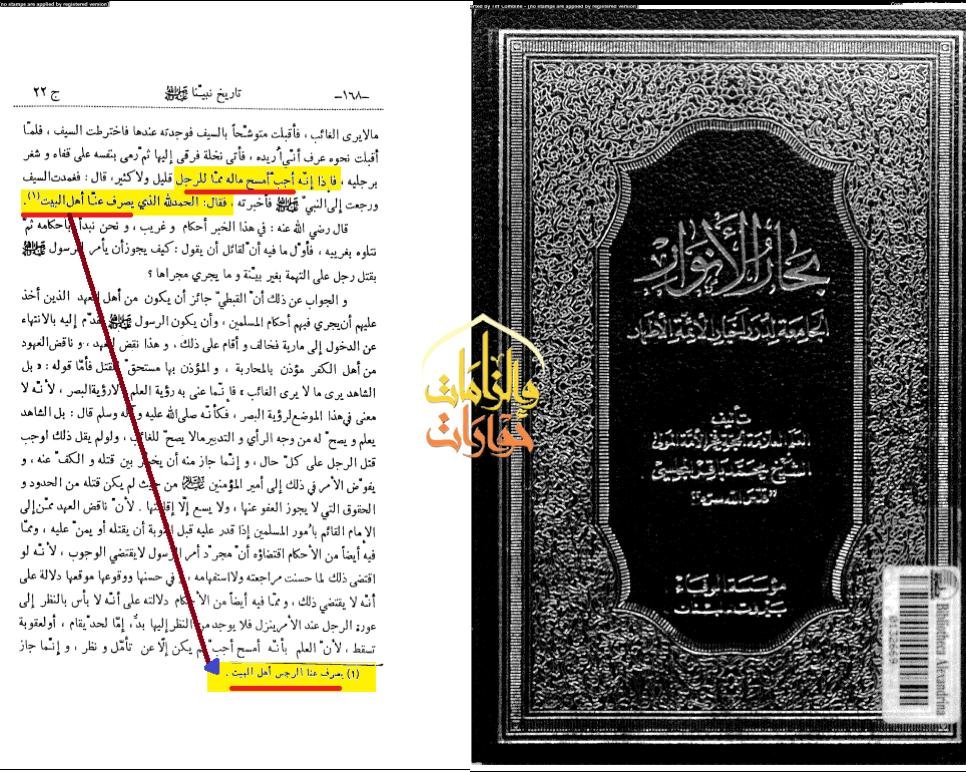 [no stamps are applied by registered version]
ج ٢٢
تاريخ نبيّنا
-١٦٨-
مالايرى الغائب ، فأقبلت متوشّحاً بالسيف فوجدته عندها فاخترطت السيف ، فلمّا
أقبلت نحوه عرف أنّي اُريده ، فأتى نخلة فرقى إليها ثمّ رمى بنفسه على قفاه و شغر
برجليه ، فاذا إنّه أجبّ أمسح ماله ممّا للرجل قليل ولا كثير، قال : فغمدت السيف
ورجعت إلى النبيّ فأخبرته ، فقال: الحمدلله الذي يصرف عنّا أهل البيت (١) .
قال رضي الله عنه : في هذا الخبر أحكام و غريب ، و نحن نبدأ بأحكامه ثمّ
نتلوه بغريبه ، فأوّل ما فيه أنّ لقائل أن يقول : كيف يجوز أن يأمر الرسول
بقتل رجل على التهمة بغير بيّنة و ما يجري مجراها ؟
و الجواب عن ذلك أنّ القبطيّ جائز أن يكون من أهل العهد الذين أخذ
عليهم أن يجري فيهم أحكام المسلمين ، وأن يكون الرسول تقدّم إليه بالانتهاء
عن الدخول إلى مارية فخالف و أقام على ذلك ، و هذا نقض للعهد ، و ناقض العهود
من أهل الكفر مؤذن بالمحاربة ، و المؤذن بها مستحقّ للقتل فأمّا قوله : « بل
الشاهد يرى ما لا يرى الغائب » فانّما عنى به رؤية العلم لا رؤية البصر ، لأنّه لا
معنى في هذا الموضع لرؤية البصر ، فكأنّه صلى الله عليه وآله وسلم قال : بل الشاهد
يعلم و يصحّ له من وجه الرأي و التدبير مالا يصحّ للغائب ، ولولم يقل ذلك لوجب
قتل الرجل على كلّ حال ، و إنّما جاز منه أن يخيّر بين قتله و الكفّ عنه ، و
يفوّض الأمر في ذلك إلى أمير المؤمنين من حيث لم يكن قتله من الحدود و
الحقوق التي لا يجوز العفو عنها ، ولا يسع إلّا إقامتها . لأنّ ناقض العهد ممّن إلى
الامام القائم باُمور المسلمين إذا قدر عليه قبل التوبة أن يقتله أو يمنّ عليه ، وممّا
فيه أيضاً من الأحكام اقتضاؤه أنّ مجرّد أمر الرسول لا يقتضي الوجوب ، لأنّه لو
اقتضى ذلك لما حسنت مراجعته ولا استفهامه ، و في حسنها ووقوعها موقعها دلالة على
أنّه لا يقتضي ذلك ، و ممّا فيه أيضاً من الأحكام دلالته على أنّه لا بأس بالنظر إلى
عورة الرجل عند الأمر ينزل فلا يوجد من النظر إليها بدّ، إمّا لحد يقام ، أو لعقوبة
تسقط ، لأنّ العلم بأنّه أمسح أجبّ لم يكن إلّا عن تأمّل و نظر ، و إنّما جاز
(١) يصرف عنا الرجس أهل البيت .
والزامات
حوارات
[no stamps are applied by registered version]
بحار الأنوار
الجامعة لدرر أخبار الأئمة الأطهار
تأليف
العلم العلامة الحجة فخر الأمة المولى
الشيخ محمد باقر المجلسي
"قدس الله سره"
مؤسسة الوفاء
بيروت - لبنان
Bibliotheca Alexandrina